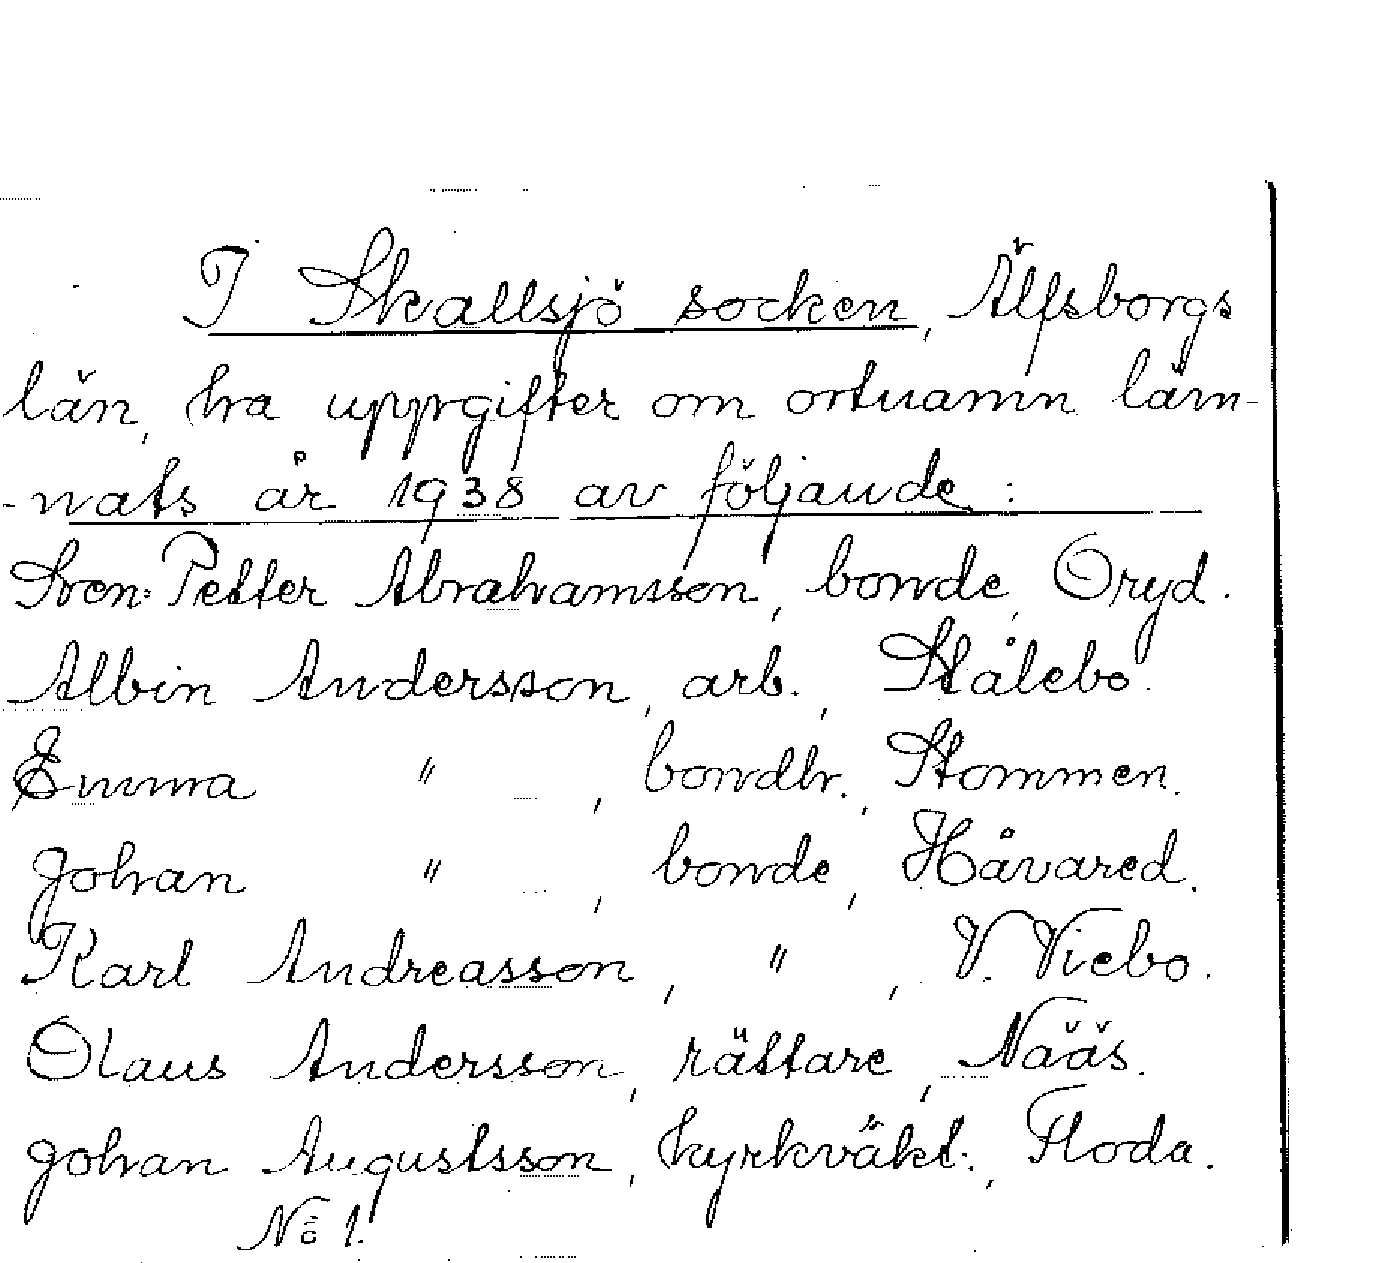 I Skallsjö socken, Älfsborgs
län, ha uppgifter om ortnamn läm-
-nats år 1938 av följande:
Sven-Petter Abrahamsson, bonde, Oryd.
Albin Andersson, arb., Stålebo.
Emma " , bondhr., Stommen.
Johan " , bonde, Håvared.
Karl Andreasson, " , V. Viebo.
Olaus Andersson, rättare, Nääs.
Johan Augustsson, kyrkväkt., Floda.
No 1.